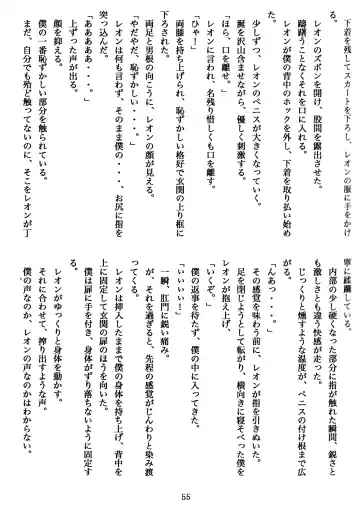 下着を残してスカートを下ろし、レオンの服に手をかけ
る。
レオンのズボンを開け、股間を露出させる。
躊躇うことなくそれを口に入れる。
レオンが僕の背中のホックを外し、下着を取り払い始め
た。
少しずつ、レオンのペニスが大きくなっていく。
涎を沢山含ませながら、優しく刺激する。
「ほら、口を離せ。」
レオンに言われ、名残り惜しくも口を離す。
「ひゃ！」
両膝を持ち上げられ、恥ずかしい格好で玄関の上り框に
下ろされた。
両足と男根の向こうに、レオンの顔が見える。
「やだやだ、恥ずかしい・・・。」
レオンは何も言わず、そのまま僕の・・・、お尻に指を
突っ込んだ。
「あああああ・・・。」
上ずった声が出る。
顔を抑える。
僕の一番恥ずかしい部分を触られている。
まだ、自分でも殆ど触ってないのに、そこをレオンが丁
寧に蹂躙している。
内部の少し硬くなった部分に指が触れた瞬間、鋭さと
も激しさとも違う快感が走った。
じっくりと燻すような温度が、ペニスの付け根まで広
がる。
「んあっ・・・。」
その感覚を味わう前に、レオンが指を引きぬいた。
足を閉じようとして転がり、横向きに寝そべった僕を
レオンが抱え上げ、
「いくぞ。」
僕の返事を待たず、僕の中に入ってきた。
「いいいい！」
一瞬、肛門に鋭い痛み。
が、それを過ぎると、先程の感覚がじんわりと染み渡
ってくる。
レオンは挿入したままで僕の身体を持ち上げ、背中を
上に固定して玄関の扉のほうを向いた。
僕は扉に手を付き、身体がずり落ちないように固定す
る。
レオンがゆっくりと身体を動かす。
それに合わせて、搾り出すような声。
僕の声なのか、レオンの声なのかはわからない。
55